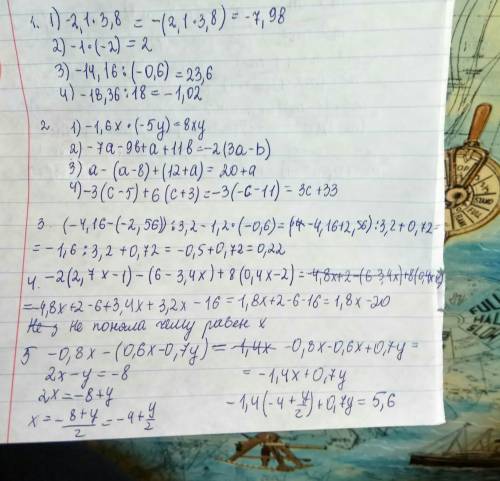 1. 1) -2,1·3,8 = -(2,1·3,8) = -7,98
2) -1·(-2) = 2
3) -14,16:(-0,6) = 23,6
4) -18,36:18 = -1,02
2. 1) -1,6x·(-5y) = 8xy
2) -7a-9b+a+11b = -2(3a-b)
3) a-(a-8)+(12+a) = 20+a
4) -3(c-5)+6(c+3) = -3(-c-11) = 3c+33
3. (-4,16-(-2,56)):3,2-1,2·(-0,6) = (-4,16+2,56):3,2+0,72=
= -1,6:3,2+0,72 = -0,5+0,72 = 0,22
4. -2(2,7x-1)-(6-3,4x)+8(0,4x-2) = -4,8x+2-(6-3,4x)+8(0,4x-2)
= -4,8x+2-6+3,4x+3,2x-16 = 1,8x+2-6-16 = 1,8x-20
Не поняла чему равен x
5 -0,8x-(0,6x-0,7y) = -1,4x -0,8x-0,6x+0,7y =
2x-y = -8 = -1,4x+0,7y
2x = -8+y
x = -8+y/2 = -4+y/2 -1,4(-4+y/2)+0,7y = 5,6